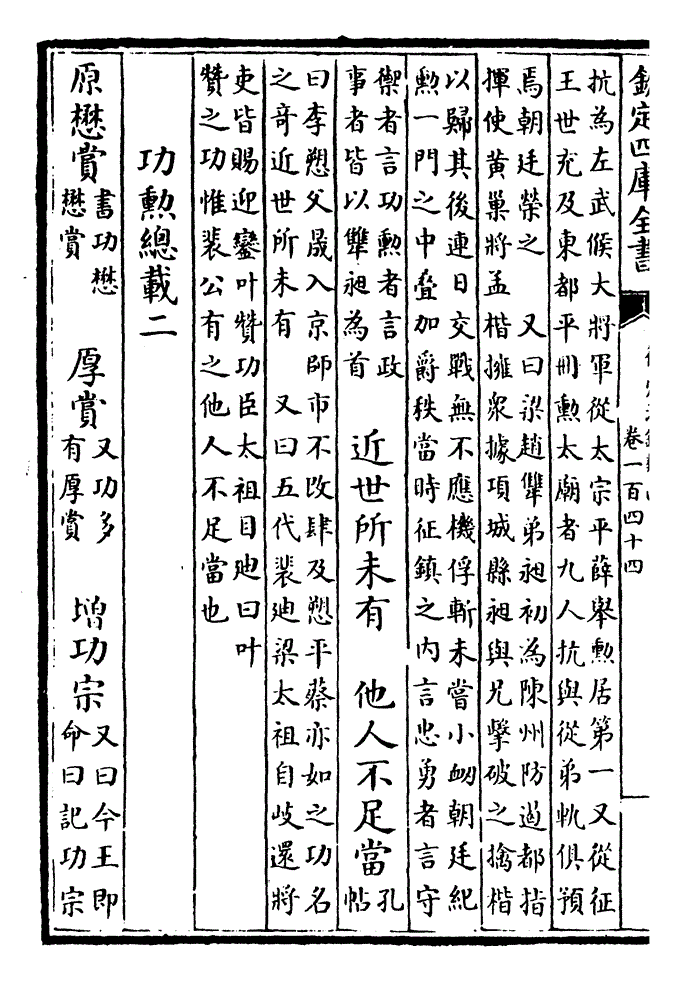 欽定四庫全書
卷一百四十四
抗為左武候大將軍從太宗平薛舉勲居第一又從征
王世充及東都平冊勲太廟者九人抗與從弟軌俱預
焉朝廷榮之 又曰梁趙犨弟昶初為陳州防遏都指
揮使黃巢將孟楷擁衆據項城縣昶與兄犨破之擒楷
以歸其後連日交戰無不應機俘斬未嘗小衂朝廷紀
勲一門之中叠加爵秩當時征鎮之内言忠勇者言守
禦者言功勲者言政
事者皆以犨昶為首
近世所未有 他人不足當
孔
帖
曰李愬父晟入京師市不改肆及愬平蔡亦如之功名
之竒近世所未有 又曰五代裴廸梁太祖自岐還將
吏皆賜迎鑾叶贊功臣太祖目廸曰叶
贊之功惟裴公有之他人不足當也
功勲總載二
原懋賞
書功懋
懋賞
厚賞
又功多
有厚賞
增功宗
又曰今王即
命曰記功宗